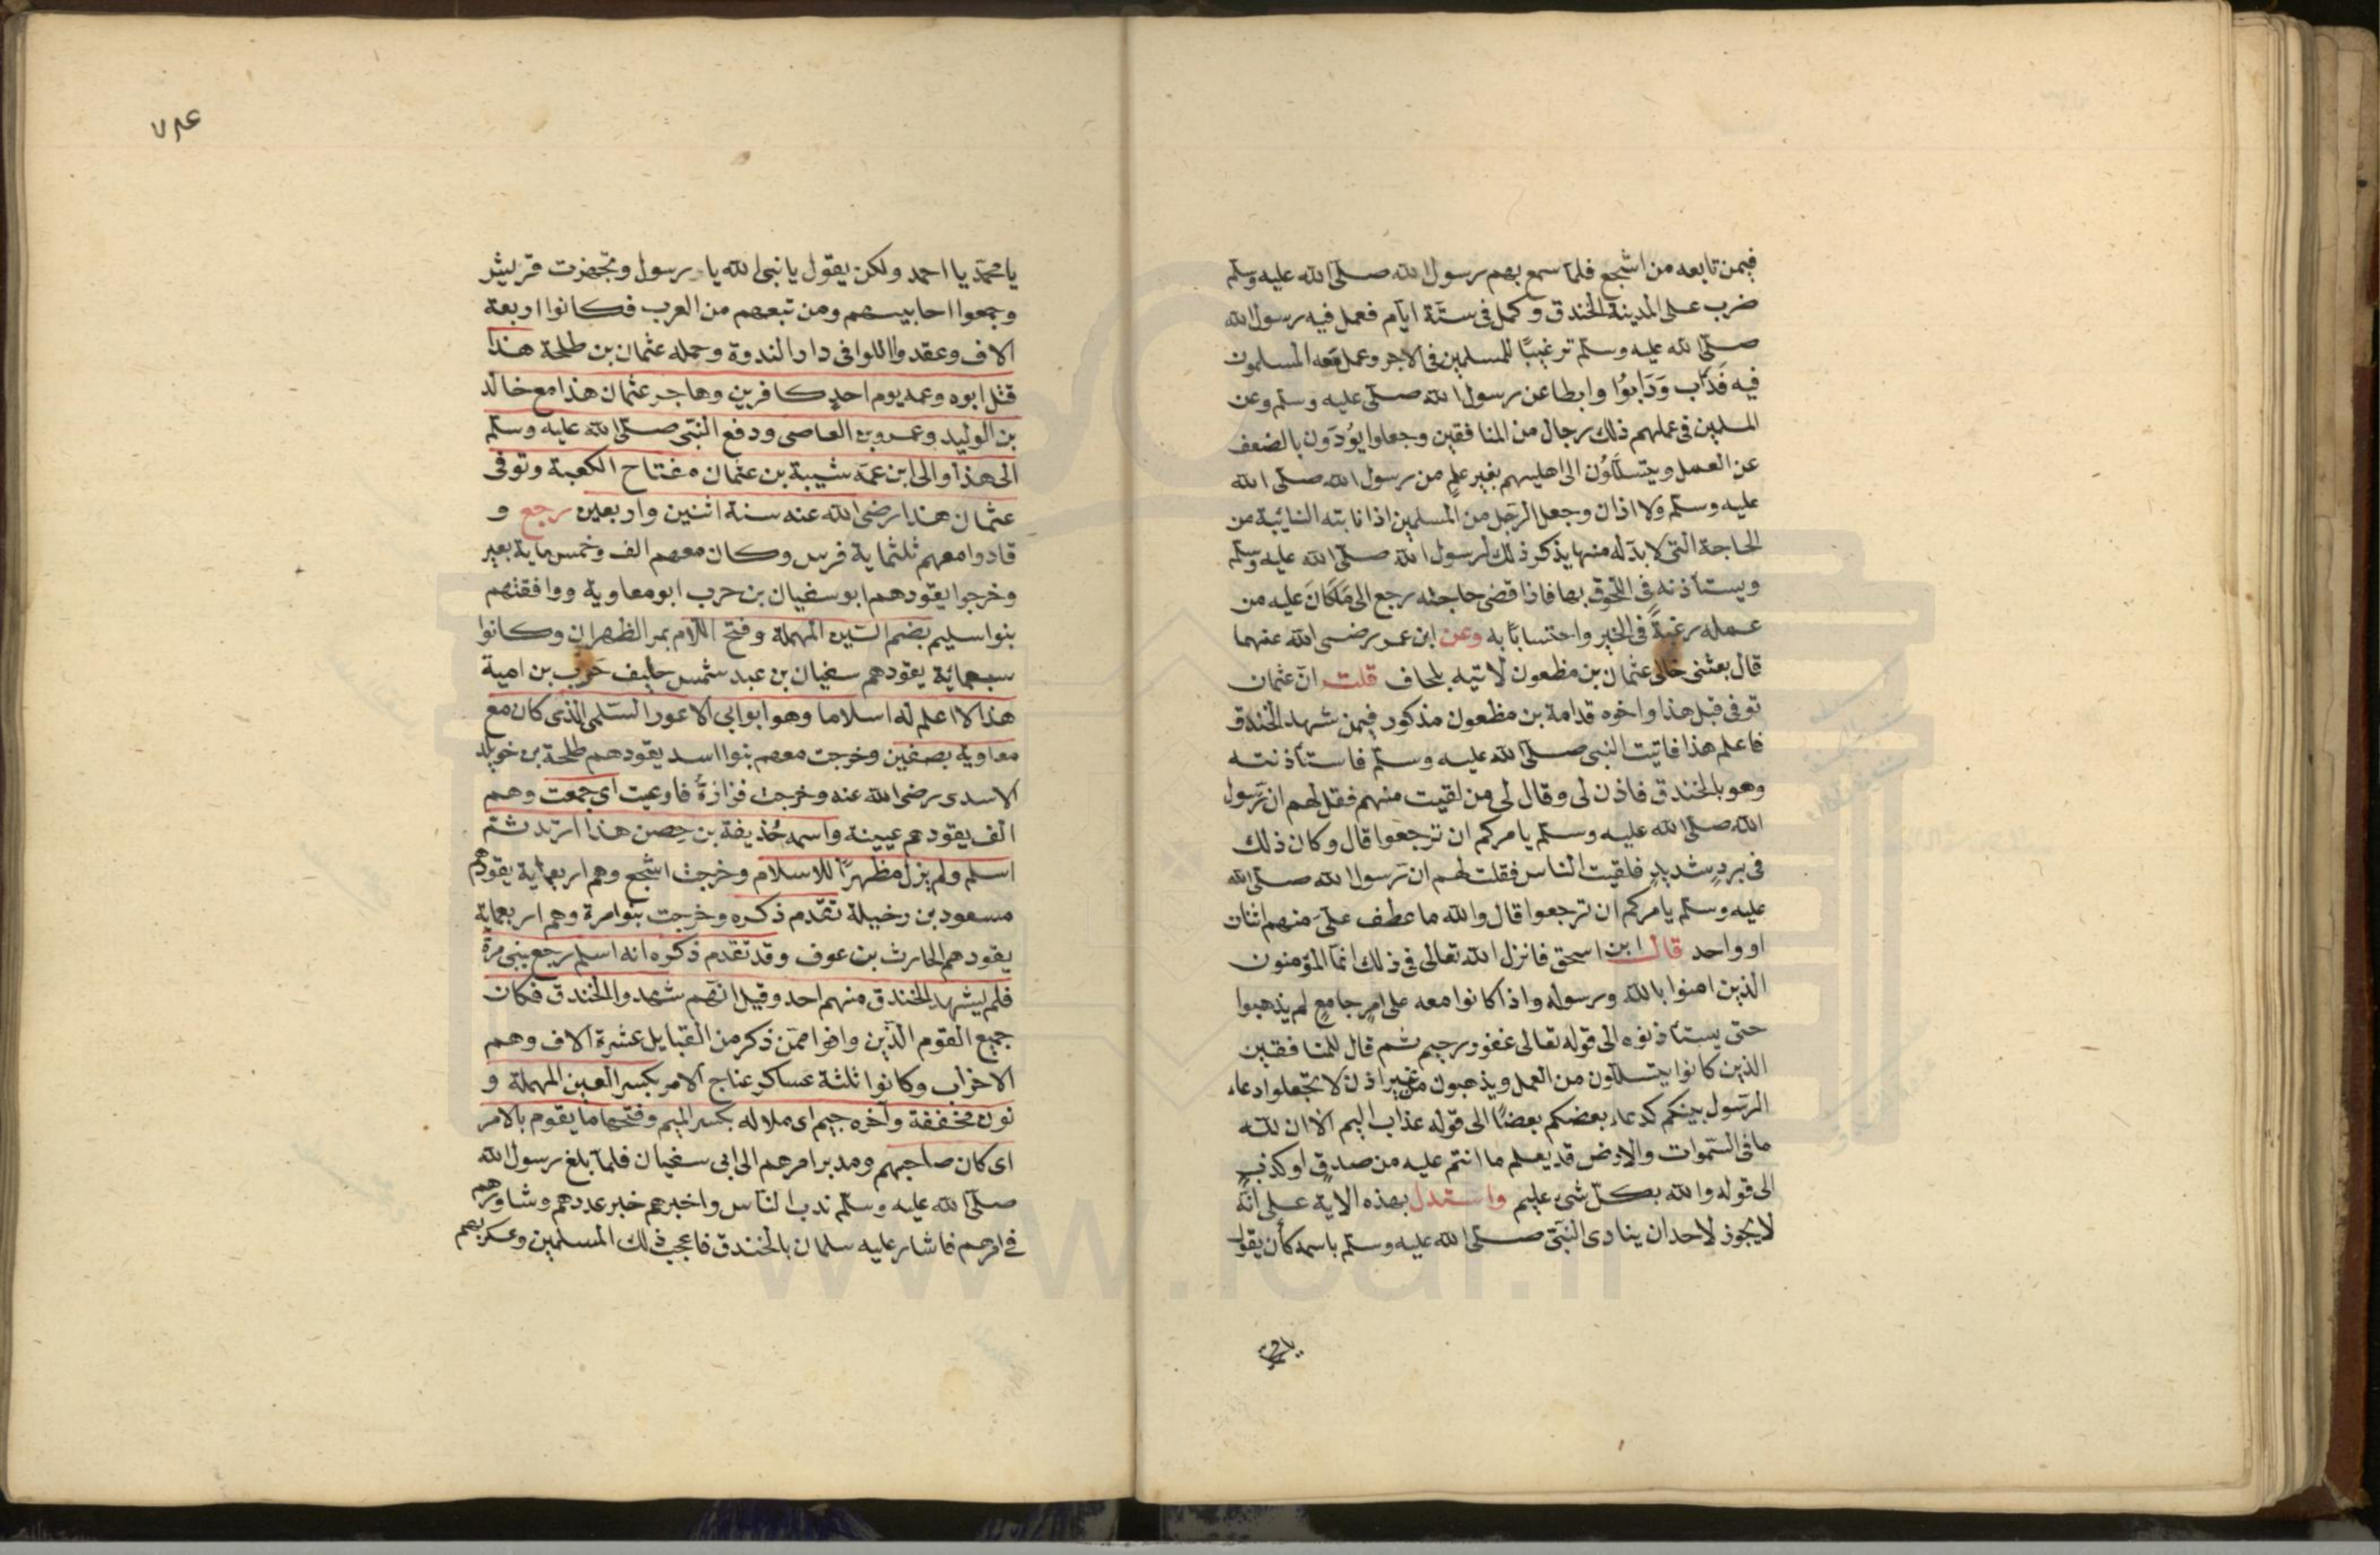 فيمن تابعه من اشجع فلما سمع بهم رسول الله صلى الله عليه وسلم
ضرب على المدينة الخندق وكمل فى ستة ايام فعمل فيه رسول الله
صلى الله عليه وسلم ترغيبًا للمسلمين فى الاجر وعمل معه المسلمون
فيه فَدَاب وَدَابوُا وابطا عن رسول الله صلى عليه وسلم وعن
المسلمين فى عملهم ذلك رجال من المنافقين وجعلوا يوُرّون بالضعف
عن العمل ويتسلّلوُن الى اهليهم بغير علمٍ من رسول الله صلى الله
عليه وسلم ولا اذان وجعل الرجل من المسلمين اذا نابته النائبة من
الحاجة التى لا بد له منها يذكر ذلك لرسول الله صلى الله عليه وسلم
ويستأذنه فى اللحوق بها فاذا قضى حاجته رجع الى مَا كانَ عليه من
عمله رغبةً فى الخير واحتسابًا به وعن ابن عمر رضى الله عنهما
قال بعثنى خالى عثمان بن مظعون لاتيه بلحاف قلت ان عثمان
توفى قبل هذا واخوه قدامة بن مظعون مذكور فيمن شهد الخندق
فاعلم هذا فاتيت النبى صلى الله عليه وسلم فاستأذنته
وهو بالخندق فاذن لى وقال لى من لقيت منهم فقل لهم ان رسول
الله صلى الله عليه وسلم يامركم ان ترجعوا قال وكان ذلك
فى بردٍ شديدٍ فلقيت الناس فقلت لهم ان رسول الله صلى الله
عليه وسلم يامركم ان ترجعوا قال والله ما عطف علىّ منهم اثنان
او واحد قال ابن اسحق فانزل الله تعالى فى ذلك انما المؤمنون
الذين امنوا بالله ورسوله واذا كانوا معه على امرٍ جامعٍ لم يذهبوا
حتى يستأذنوه الى قوله تعالى غفور رحيم ثم قال للمنافقين
الذين كانوا يتسللون من العمل ويذهبون من غير اذن لا تجعلوا دعاء
الرسول بينكم كدعاء بعضكم بعضًا الى قوله عذاب اليم الا ان لله
ما فى السموات والارض قد يعلم ما انتم عليه من صدقٍ او كذبٍ
الى قوله والله بكل شىء عليم واستدل بهذه الاية على انه
لا يجوز لاحد ان ينادى النبى صلى الله عليه وسلم باسمه كأن يقول
٧٨٤
يا محمد يا احمد ولكن يقول يا نبى الله يا رسول وتجهزت قريش
وجمعوا احابيسهم ومن تبعهم من العرب فكانوا اربعة
الاف وعقدوا اللوا فى دار الندوة وحمله عثمان بن طلحة هذا
قتل ابوه وعمه يوم احدٍ كافرين وهاجر عثمان هذا مع خالد
بن الوليد وعمرو بن العاصى ودفع النبى صلى الله عليه وسلم
الى هذا والى ابن عمه شيبة بن عثمان مفتاح الكعبة وتوفى
عثمان هذا رضى الله عنه سنة اثنين واربعين رجع و
قادوا معهم ثلثماية فرس وكان معهم الف وخمس ماية بعير
وخرجوا يقودهم ابو سفيان بن حرب ابو معاوية ووافقتهم
بنوا سليم بضم السين المهملة وفتح اللام بمر الظهران وكانوا
سبعمائة يقودهم سفيان بن عبد شمس حليف حرب بن امية
هذا لا اعلم له اسلاما وهو ابو ابى الاعور السلمى الذى كان مع
معاوية بصفين وخرجت معهم بنوا اسد يقودهم طلحة بن خويلد
الاسدى رضى الله عنه وخرجت فزارةُ فاوعبت اى جمعت وهم
الف يقودهم عيينة واسمه حُذيفة بن حِصن هذا ارتد ثم
اسلم ولم يزل مظهرًا للاسلام وخرجت اشجع وهم اربعماية يقودهم
مسعود بن رخيلة تقدم ذكره وخرجت بنوا مرة وهم اربعماية
يقودهم الحارث بن عوف وقد تقدم ذكره انه اسلم رجع ببنى مرة
فلم يشهد الخندق منهم احد وقيل انهم شهدوا الخندق فكان
جميع القوم الذين وافوا ممن ذكر من القبايل عشرة الاف وهم
الاحزاب وكانوا ثلثة عساكر عناج الامر بكسر العين المهملة و
نون مخففة وآخره جيم اى ملاله بكسر الميم وفتحها ما يقوم بالامر
اى كان صاحبهم ومدبر امرهم الى ابى سفيان فلما بلغ رسول الله
صلى الله عليه وسلم ندب الناس واخبرهم خبر عددهم وشاورهم
فى امرهم فاشار عليه سلمان بالخندق فاعجب ذلك المسلمين وعسكر بهم